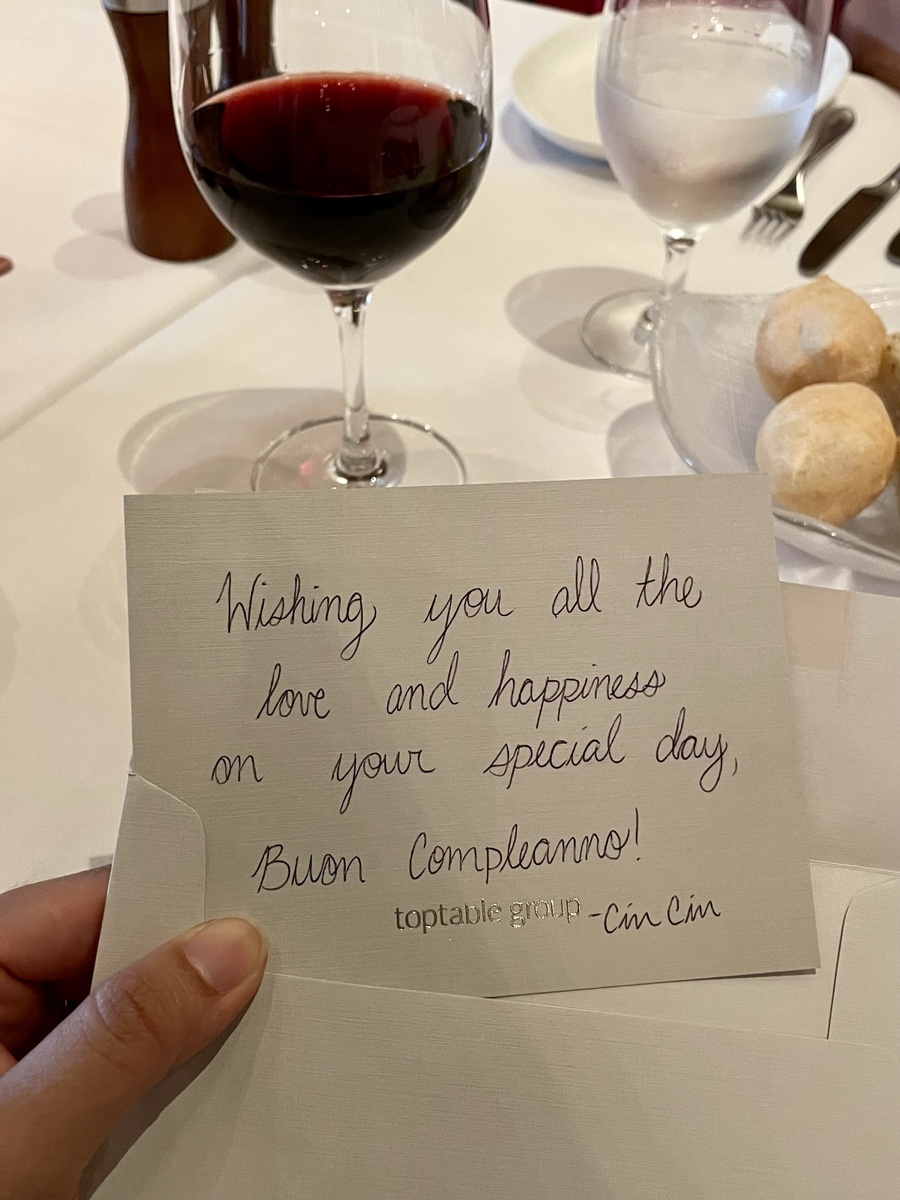 Wishing you all the
love and happiness
on your special day,
Buon Compleanno!
toptable group -Cin Cin